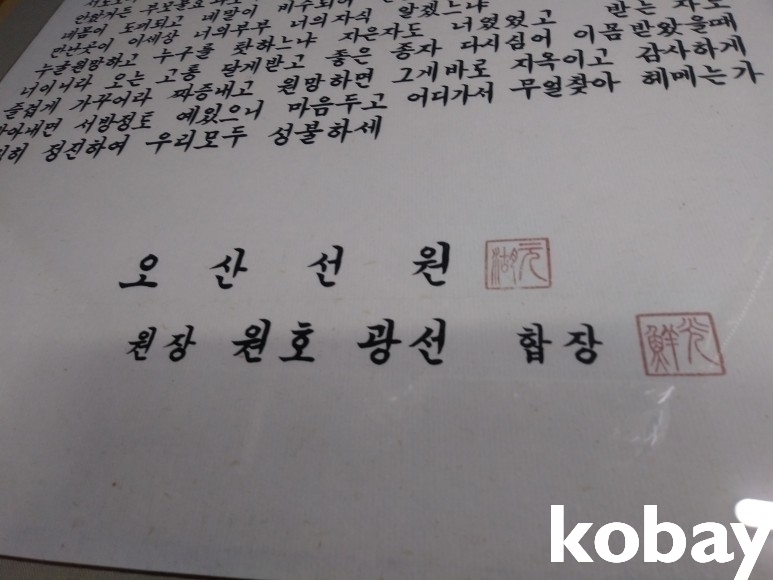 만난곳이 이세상 너의부부 너의자식 알겠느냐 받는 자도
누굴원망하고 누구를 탓하느냐 지은자도 너였었고
너이니라 오는 고통 달게받고 좋은 종자 다시심어 이몸 받았을때
즐겁게 가꾸어라 짜증내고 원망하면 그게바로 지옥이고 감사하게
서방정토 예있으니 마음두고 어디가서 무얼찾아 헤메는가
정진하여 우리모두 성불하세
오 산 선 원
元湖
원장 원호 광선 합장
光鮮
kobay